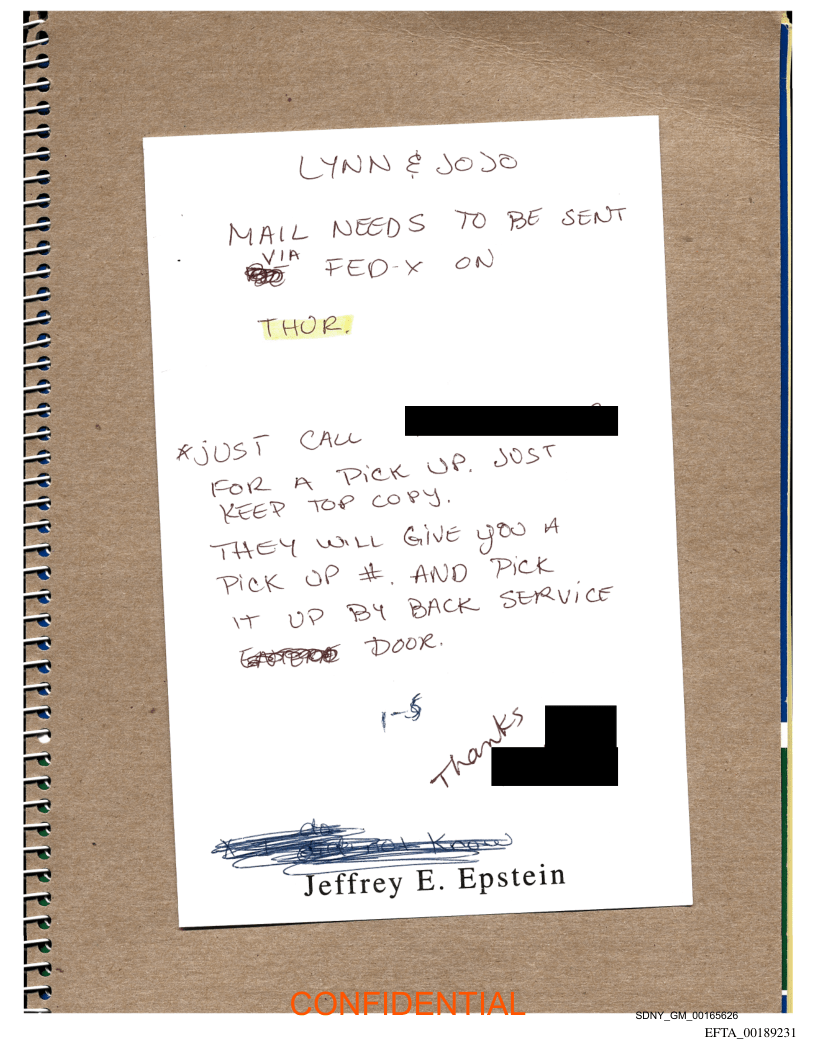 LYNN & JOJO
MAIL NEEDS TO BE SENT
VIA
FED-X ON
THUR.
*JUST CALL
FOR A PICK UP. JUST
KEEP TOP COPY.
THEY WILL GIVE YOU A
PICK UP #. AND PICK
IT UP BY BACK SERVICE
DOOR.
Thanks
do
not Know
Jeffrey E. Epstein
CONFIDENTIAL
SDNY_GM_00165626
EFTA_00189231